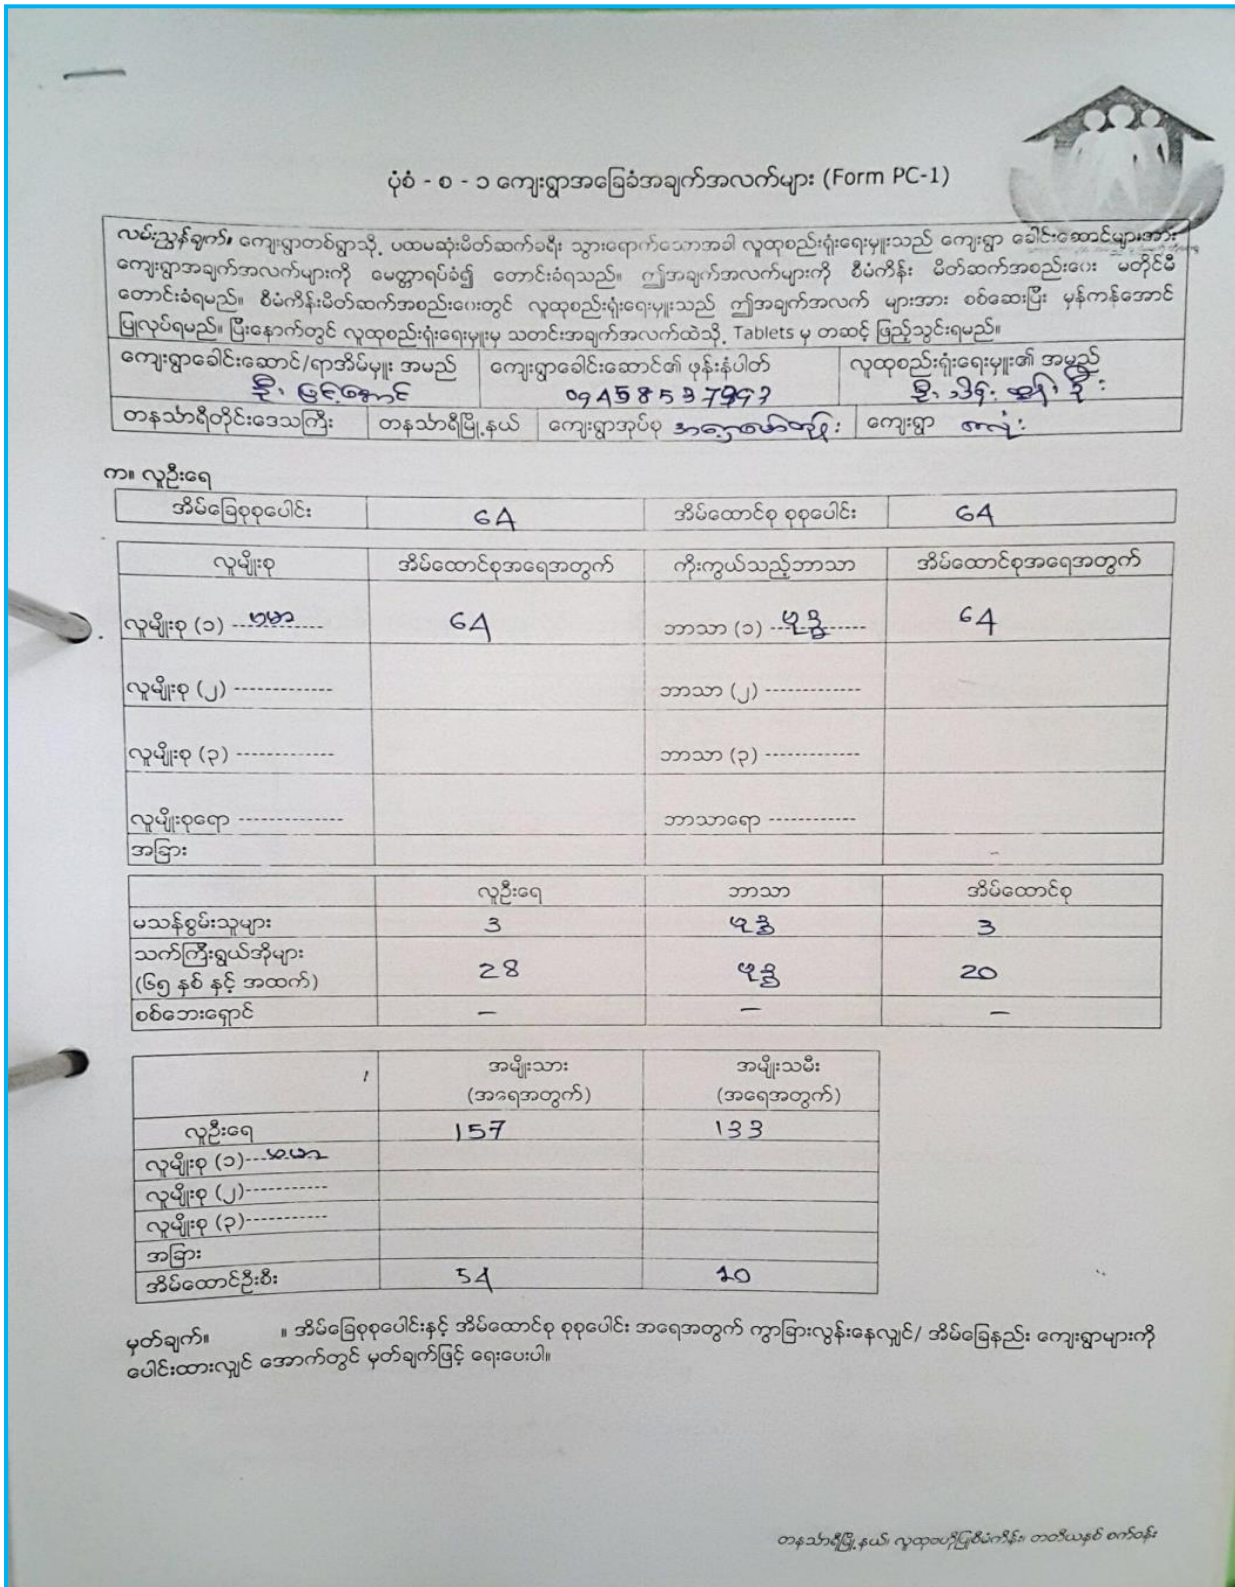 ပုံစံ - စ - ၁ ကျေးရွာအခြေခံအချက်အလက်များ (Form PC-1)
လမ်းညွှန်ချက်။ ကျေးရွာတစ်ရွာသို့ ပထမဆုံးမိတ်ဆက်ခရီး သွားရောက်သောအခါ လူထုစည်းရုံးရေးမှူးသည် ကျေးရွာ ခေါင်းဆောင်များအား
ကျေးရွာအချက်အလက်များကို မေတ္တာရပ်ခံ၍ တောင်းခံရသည်။ ဤအချက်အလက်များကို စီမံကိန်း မိတ်ဆက်အစည်းဝေး မတိုင်မီ
တောင်းခံရမည်။ စီမံကိန်းမိတ်ဆက်အစည်းဝေးတွင် လူထုစည်းရုံးရေးမှူးသည် ဤအချက်အလက် များအား စစ်ဆေးပြီး မှန်ကန်အောင်
ပြုလုပ်ရမည်။ ပြီးနောက်တွင် လူထုစည်းရုံးရေးမှူးမှ သတင်းအချက်အလက်ထဲသို့ Tablets မှ တဆင့် ဖြည့်သွင်းရမည်။
ကျေးရွာခေါင်းဆောင်/ရာအိမ်မှူး အမည် ကျေးရွာခေါင်းဆောင်၏ ဖုန်းနံပါတ် လူထုစည်းရုံးရေးမှူး၏ အမည်
ဦး
တနင်္သာရီတိုင်းဒေသကြီး တနင်္သာရီမြို့နယ် ကျေးရွာအုပ်စု ကျေးရွာ
က။ လူဦးရေ
အိမ်ခြေစုစုပေါင်း 64 အိမ်ထောင်စု စုစုပေါင်း 64
လူမျိုးစု အိမ်ထောင်စုအရေအတွက် ကိုးကွယ်သည့်ဘာသာ အိမ်ထောင်စုအရေအတွက်
လူမျိုးစု (၁) ဗမာ 64 ဘာသာ (၁) ဗုဒ္ဓ 64
လူမျိုးစု (၂) ------------- ဘာသာ (၂) -------------
လူမျိုးစု (၃) ------------- ဘာသာ (၃) -------------
လူမျိုးစုရော -------------- ဘာသာရော ------------
အခြား -
လူဦးရေ ဘာသာ အိမ်ထောင်စု
မသန်စွမ်းသူများ 3 ဗုဒ္ဓ 3
သက်ကြီးရွယ်အိုများ
(၆၅ နှစ် နှင့် အထက်) 28 ဗုဒ္ဓ 20
စစ်ဘေးရှောင် - - -
အမျိုးသား အမျိုးသမီး
(အရေအတွက်) (အရေအတွက်)
လူဦးရေ 157 133
လူမျိုးစု (၁)---ဗမာ
လူမျိုးစု (၂)-----------
လူမျိုးစု (၃)-----------
အခြား
အိမ်ထောင်ဦးစီး 54 10
မှတ်ချက်။ ။ အိမ်ခြေစုစုပေါင်းနှင့် အိမ်ထောင်စု စုစုပေါင်း အရေအတွက် ကွာခြားလွန်းနေလျှင်/ အိမ်ခြေနည်း ကျေးရွာများကို
ပေါင်းထားလျှင် အောက်တွင် မှတ်ချက်ဖြင့် ရေးပေးပါ။
တနင်္သာရီမြို့နယ်၊ လူထုဗဟိုပြုစီမံကိန်း၊ တတိယနှစ် စက်ဝန်း